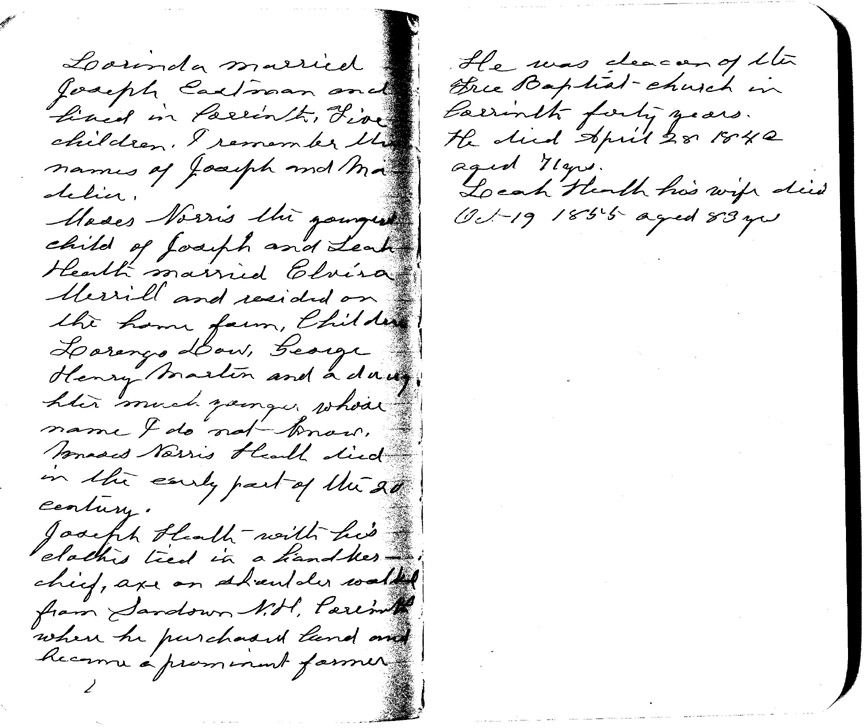 Lorinda married
Joseph Eastman and
lived in Corrinth. Five
children. I remember the
names of Joseph and Ma-
delia.
Moses Norris the youngest
child of Joseph and Leah
Heath married Elvira
Merrill and resided on
the home farm, Children
Lorenzo Dow, George
Henry Martin and a daug-
hter much younger whose
name I do not know.
Moses Norris Heath died
in the early part of the 20
century.
Joseph Heath with his
clothes tied in a handker-
chief, axe on shoulder walked
from Sandown N.H. Corinth
where he purchased land and
became a prominent farmer
He was deacon of the
Free Baptist church in
Corrinth forty years.
He died April 28 1842
aged 71 yrs.
Leah Heath his wife died
Oct-19 1855 aged 83 yrs